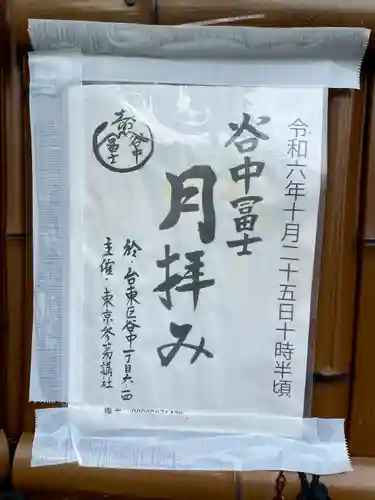 令和六年十月二十五日十時半頃
谷中冨士
月拝み
於・台東区谷中一丁目六一四
主催・東京参笳講社
谷中
冨士